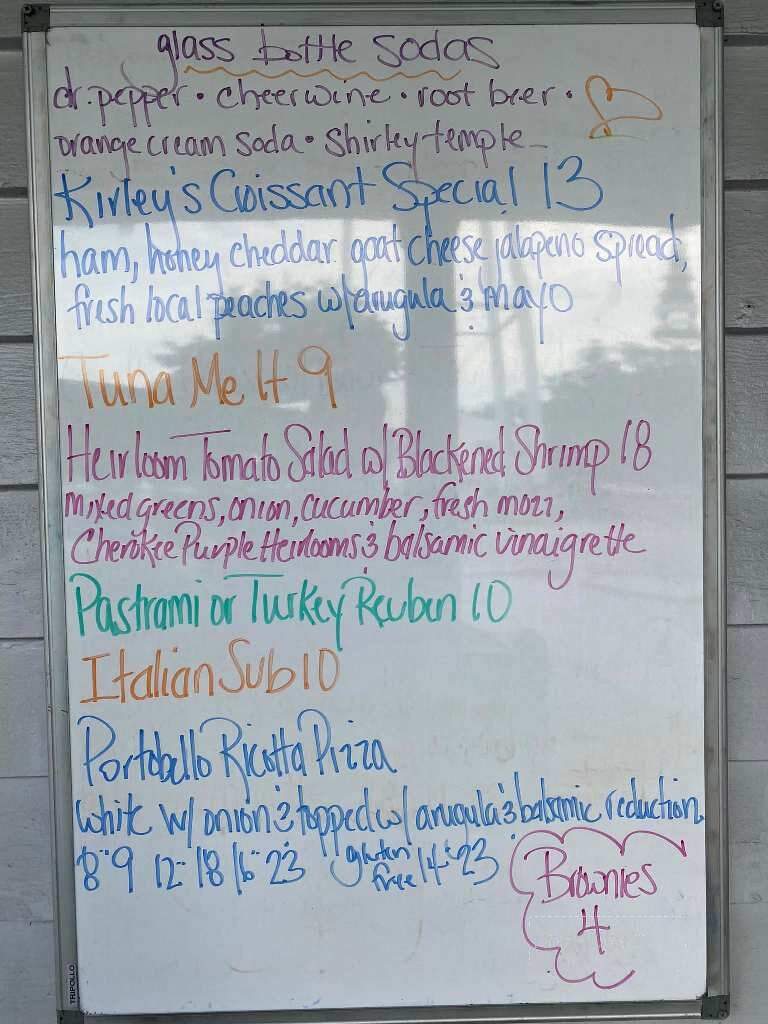 glass bottle sodas
dr. pepper • cheerwine • root beer •
orange cream soda • Shirley temple
Kirley's Croissant Special 13
ham, honey cheddar goat cheese jalapeno spread,
fresh local peaches w/ arugula & mayo
Tuna Melt 9
Heirloom Tomato Salad w/ Blackened Shrimp 18
Mixed greens, onion, cucumber, fresh mozz,
Cherokee Purple Heirlooms & balsamic vinaigrette
Pastrami or Turkey Reuben 10
Italian Sub 10
Portobello Ricotta Pizza
White w/ onion & topped w/ arugula & balsamic reduction
8" 9 12" 18 16" 23 gluten free 14" 23
Brownies
4
TRIPOLLO